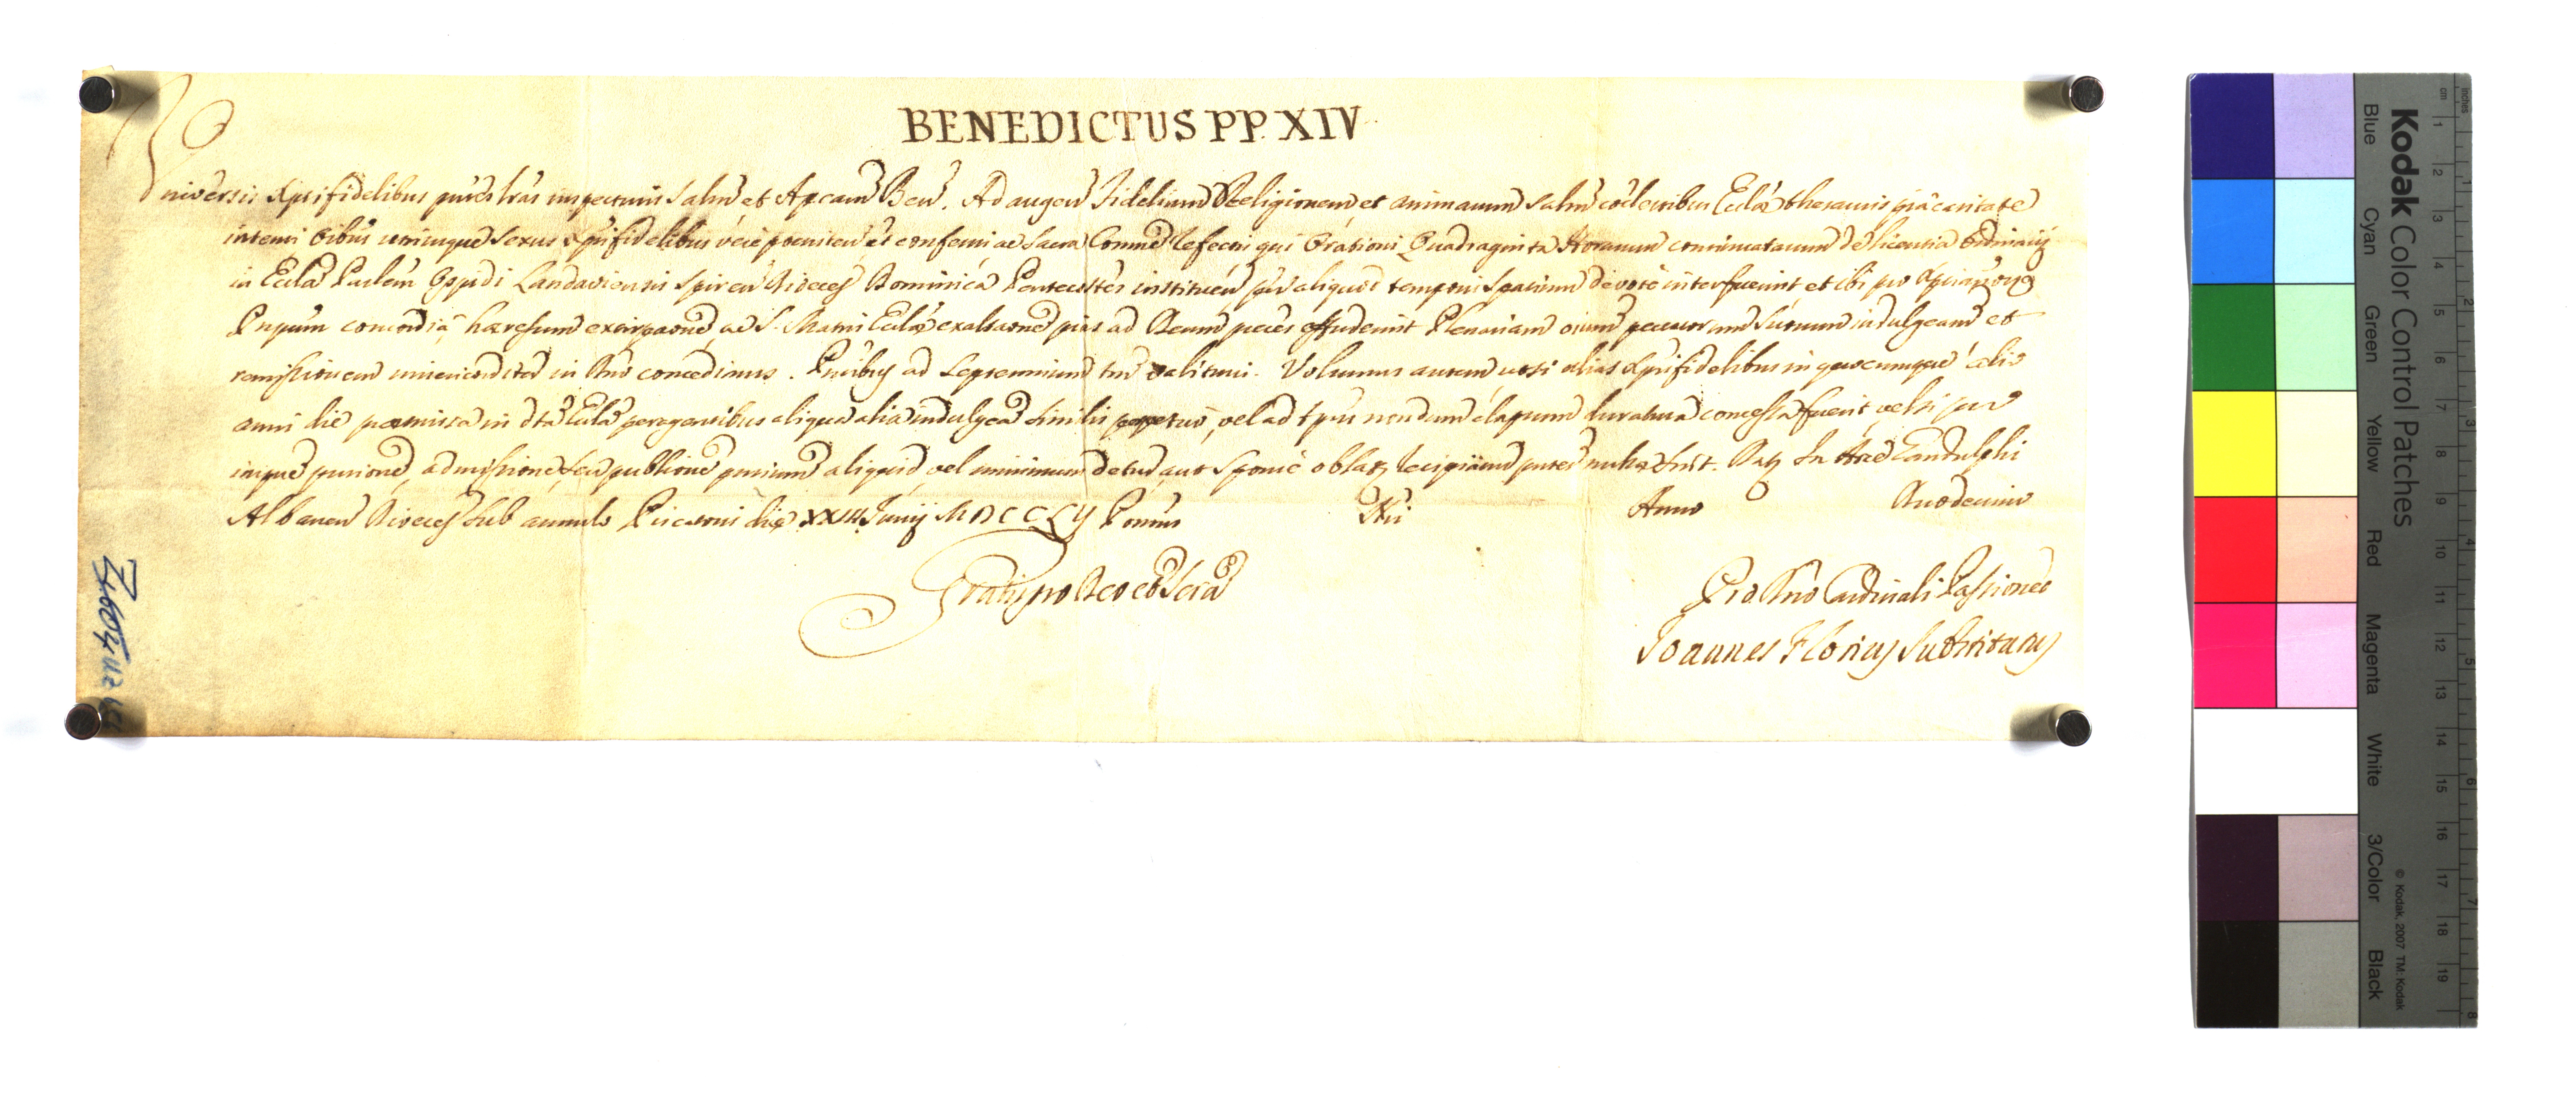 BENEDICTUS PP. XIV
Universis Xprifidelibus pntes lras inspecturis Salm et Apcam Ben. Ad augen Fidelium Religionem et animarum salm coelestibus Ecclae thesauris pia caritate
intenti oibus utriusque sexus Xprifidelibus vere poeniten et confessis ac Sacra Comne refectis qui Orationi Quadraginta Horarum continuatarum de licentia Ordinarij
in Eccla Parlem Oppidi Landaviensis Spiren Dioeces Dominica Pentecostes instituen per aliquod temporis spatium devote interfuerint et ibi pro Xprianorum
Pnpum concordia, haeresum extirpaone, ac S. Matris Ecclae exaltaone pias ad Deum preces effuderint Plenariam oium peccatorum suorum indulgeam et
remissionem misericorditer in Dno concedimus. Pntibus ad Septennium tm valituris. Volumus autem ut si alias Xprifidelibus in quocumque alio
anni die praemissa in dta Eccla peragentibus aliqua alia indulgea similis perpetuo, vel ad tpus nondum elapsum duratura concessa fuerit vel si pro
impne pntone, admissione, seu pubblione pntium aliquid vel minimum detur, aut sponte oblatum recipiatur pntes nullae sint. Datum In Arce Gandulphi
Albanen Dioeces sub annulo Piscatoris die XXIII Junij MDCCLII Pontus Nri Anno Duodecimo
Gratis pro Deo et Scra
Pro Dno Cardinali Passioneo
Joannes Florius Substitutus
Kodak Color Control Patches
Blue Cyan Green Yellow Red Magenta White 3/Color Black
© Kodak, 2007 TM: Kodak
inches 1 2 3 4 5 6 7 8
cm 1 2 3 4 5 6 7 8 9 10 11 12 13 14 15 16 17 18 19